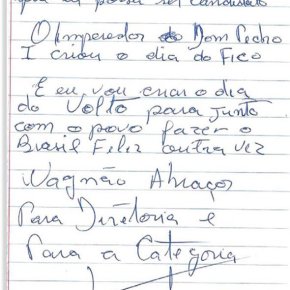 que eu possa ser candidato
O Imperador Dom Pedro
I criou o dia do Fico
E eu vou criar o dia
do Volto para junto
com o povo fazer o
Brasil Feliz outra vez
Vagnão Abraços
Para Diretoria e
Para a Categoria